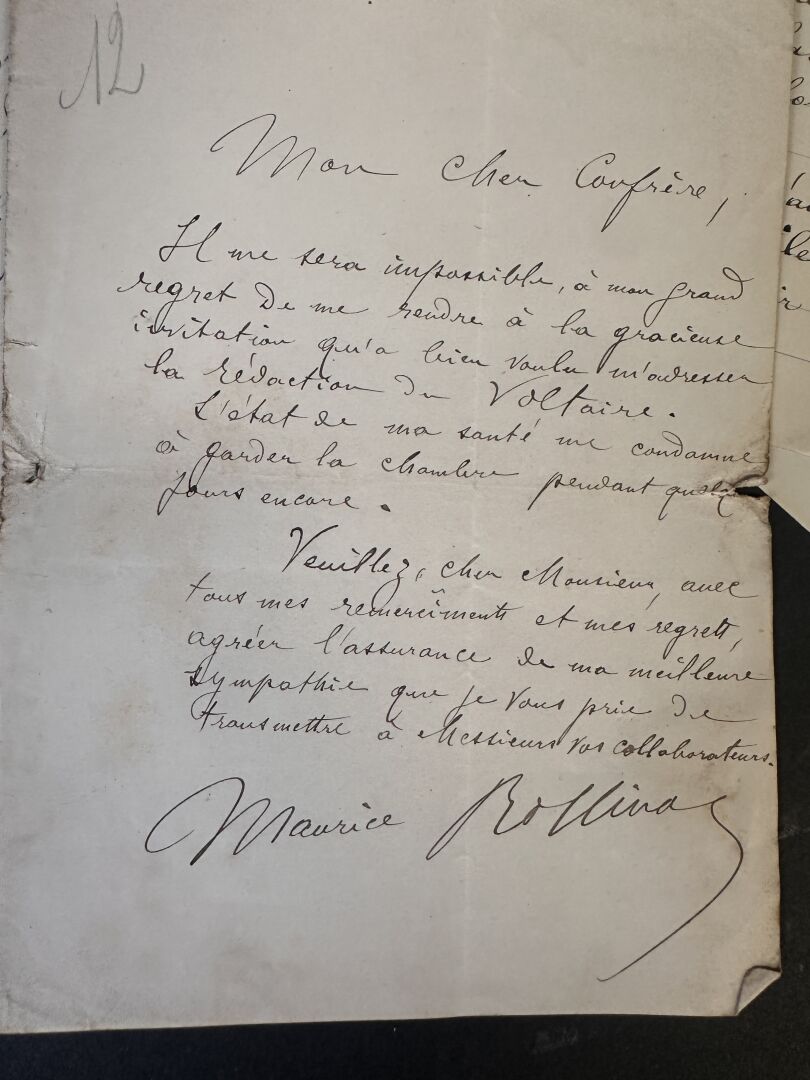 12
Mon cher Confrère,
Il me sera impossible, à mon grand
regret de me rendre à la gracieuse
invitation qu'a bien voulu m'adresser
la rédaction du Voltaire.
L'état de ma santé me condamne
à garder la chambre pendant quelq
jours encore.
Veuillez, cher Monsieur, avec
tous mes remerciments et mes regrets,
agréer l'assurance de ma meilleure
sympathie que je vous prie de
transmettre à Messieurs vos collaborateurs.
Maurice Rollinat